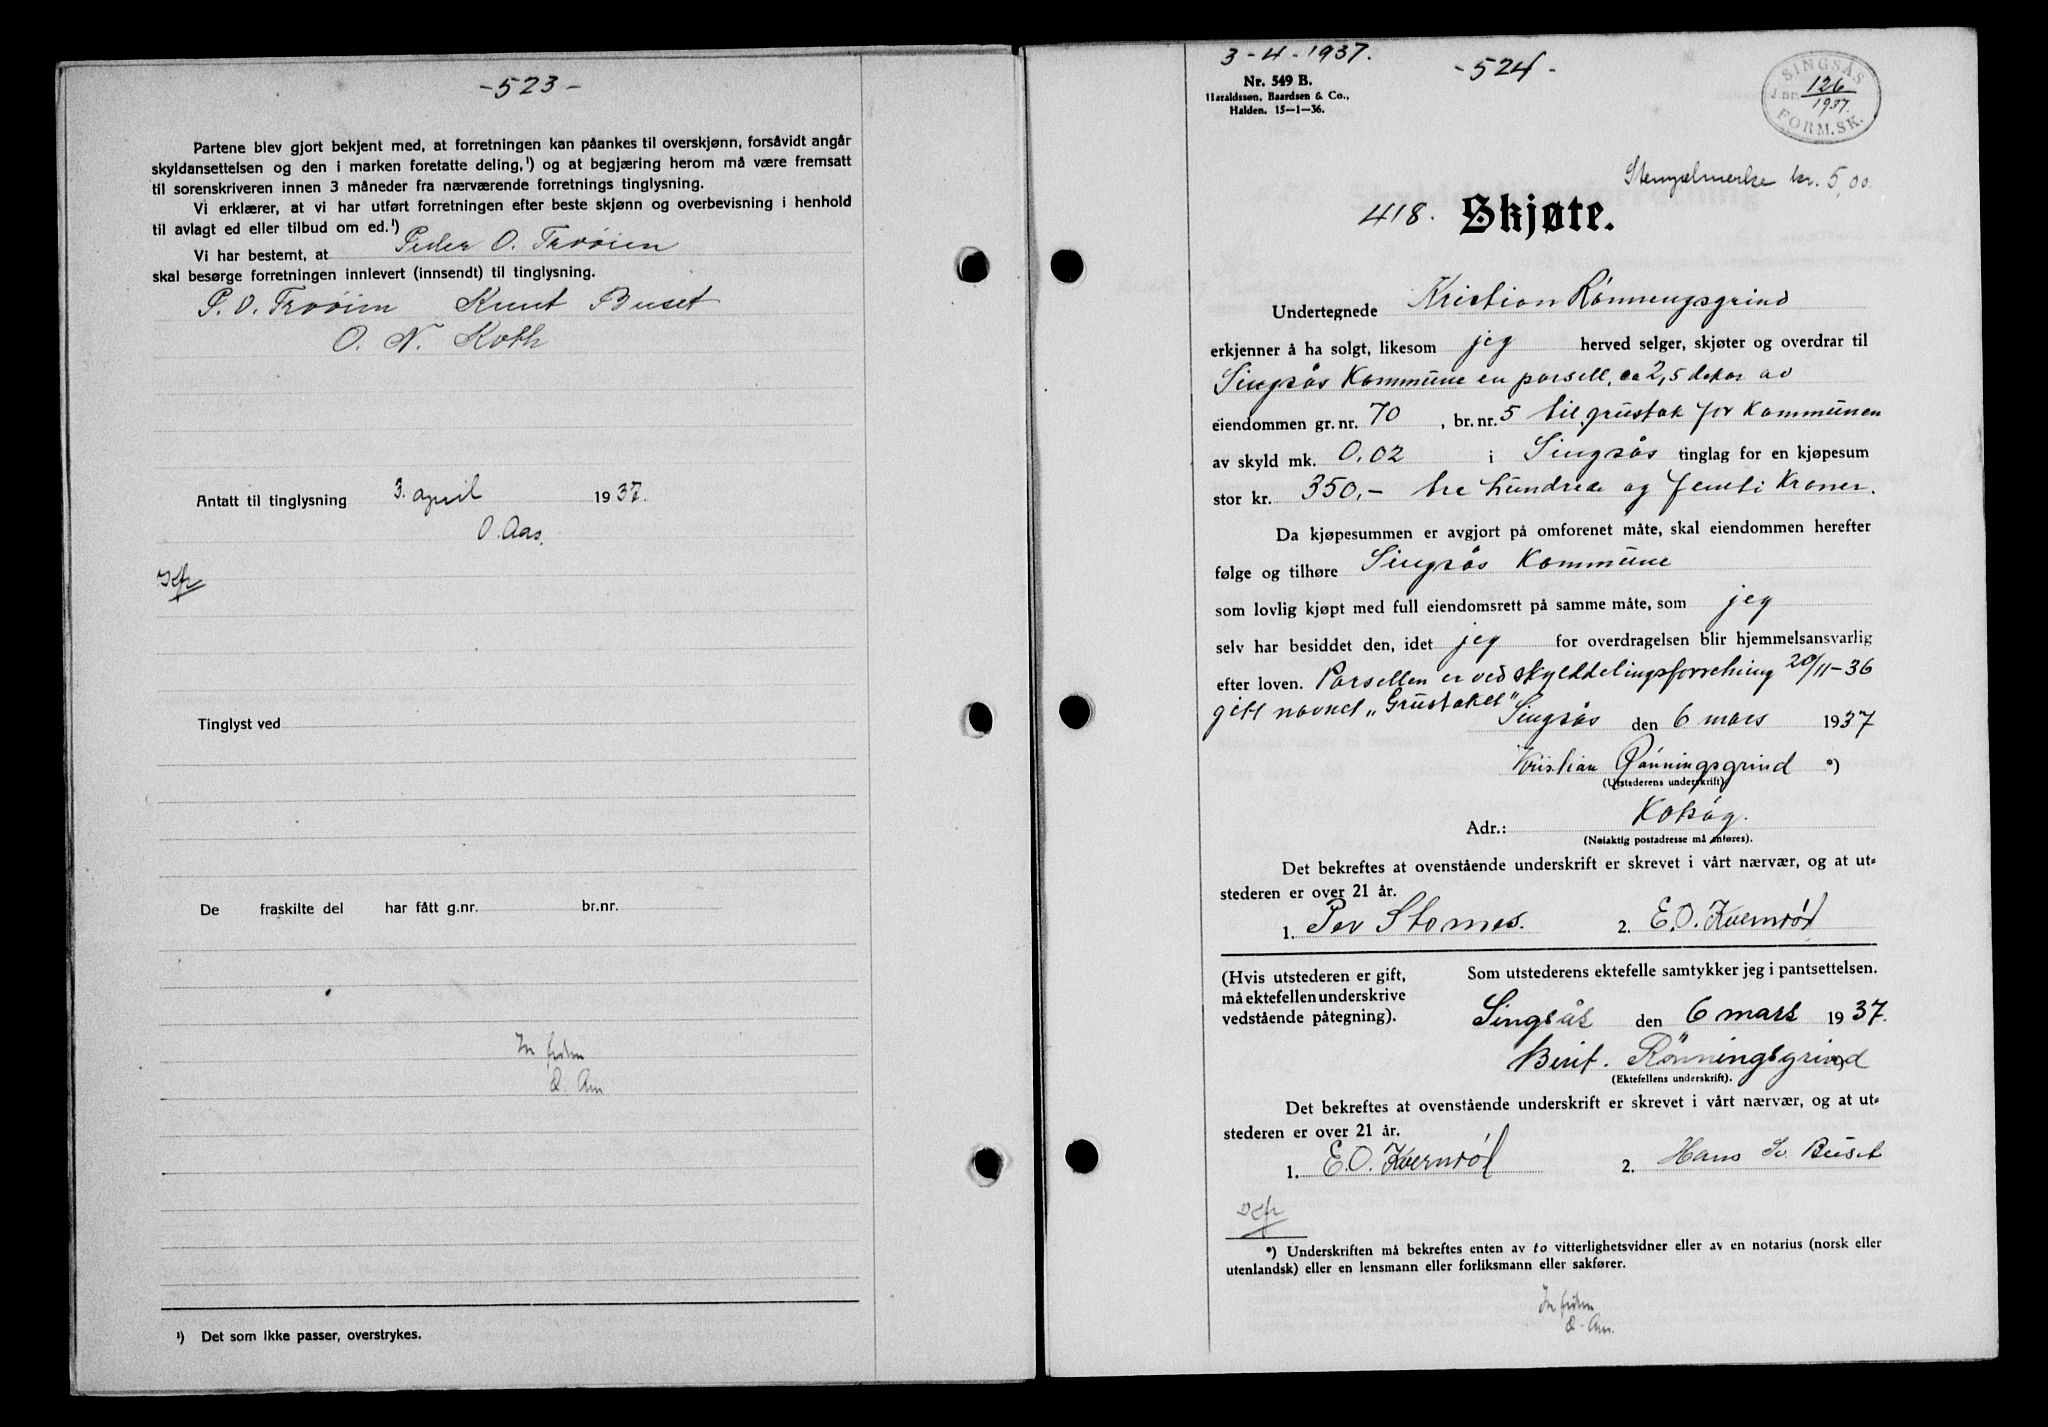 -523-
Partene blev gjort bekjent med, at forretningen kan påankes til overskjønn, forsåvidt angår
skyldansettelsen og den i marken foretatte deling,¹) og at begjæring herom må være fremsatt
til sorenskriveren innen 3 måneder fra nærværende forretnings tinglysning.
Vi erklærer, at vi har utført forretningen efter beste skjønn og overbevisning i henhold
til avlagt ed eller tilbud om ed.¹)
Vi har bestemt, at Peder O. Trøien
skal besørge forretningen innlevert (innsendt) til tinglysning.
P. O. Trøien Knut Buset
O. N. Koth
Antatt til tinglysning 3. april 1937.
O. Aas.
Tinglyst ved
De fraskilte del har fått g.nr. br.nr.
¹) Det som ikke passer, overstrykes.
3-4-1937.
-524-
Nr. 549 B.
Haraldssøn, Baardsen & Co.,
Halden. 15-1-36.
SINGSÅS
J.nr. 126/1937.
FORM.SK.
Stempelmerke kr. 5,00.
418. Skjøte.
Undertegnede Kristian Rønningsgrind
erkjenner å ha solgt, likesom jeg herved selger, skjøter og overdrar til
Singsås Kommune en parsell, ca 2,5 dekar av
eiendommen gr. nr. 70, br. nr. 5 til grustak for Kommunen
av skyld mk. 0,02 i Singsås tinglag for en kjøpesum
stor kr. 350,- tre hundrede og femti Kroner.
Da kjøpesummen er avgjort på omforenet måte, skal eiendommen herefter
følge og tilhøre Singsås Kommune
som lovlig kjøpt med full eiendomsrett på samme måte, som jeg
selv har besiddet den, idet jeg for overdragelsen blir hjemmelsansvarlig
efter loven. Parsellen er ved skylddelingsforretning 20/11-36
gitt navnet „Grustaket"
Singsås den 6 mars 1937
Kristian Rønningsgrind *)
(Utstederens underskrift)
Adr.: Kotsøy.
(Nøiaktig postadresse må anføres).
Det bekreftes at ovenstående underskrift er skrevet i vårt nærvær, og at ut-
stederen er over 21 år.
1. Per Stornes. 2. E. O. Kvernrød
(Hvis utstederen er gift,
må ektefellen underskrive
vedstående påtegning).
Som utstederens ektefelle samtykker jeg i pantsettelsen.
Singsås den 6 mars 1937.
Berit. Rønningsgrind
(Ektefellens underskrift).
Det bekreftes at ovenstående underskrift er skrevet i vårt nærvær, og at ut-
stederen er over 21 år.
1. E. O. Kvernrød 2. Hans Buset
*) Underskriften må bekreftes enten av to vitterlighetsvidner eller av en notarius (norsk eller
utenlandsk) eller en lensmann eller forliksmann eller sakfører.